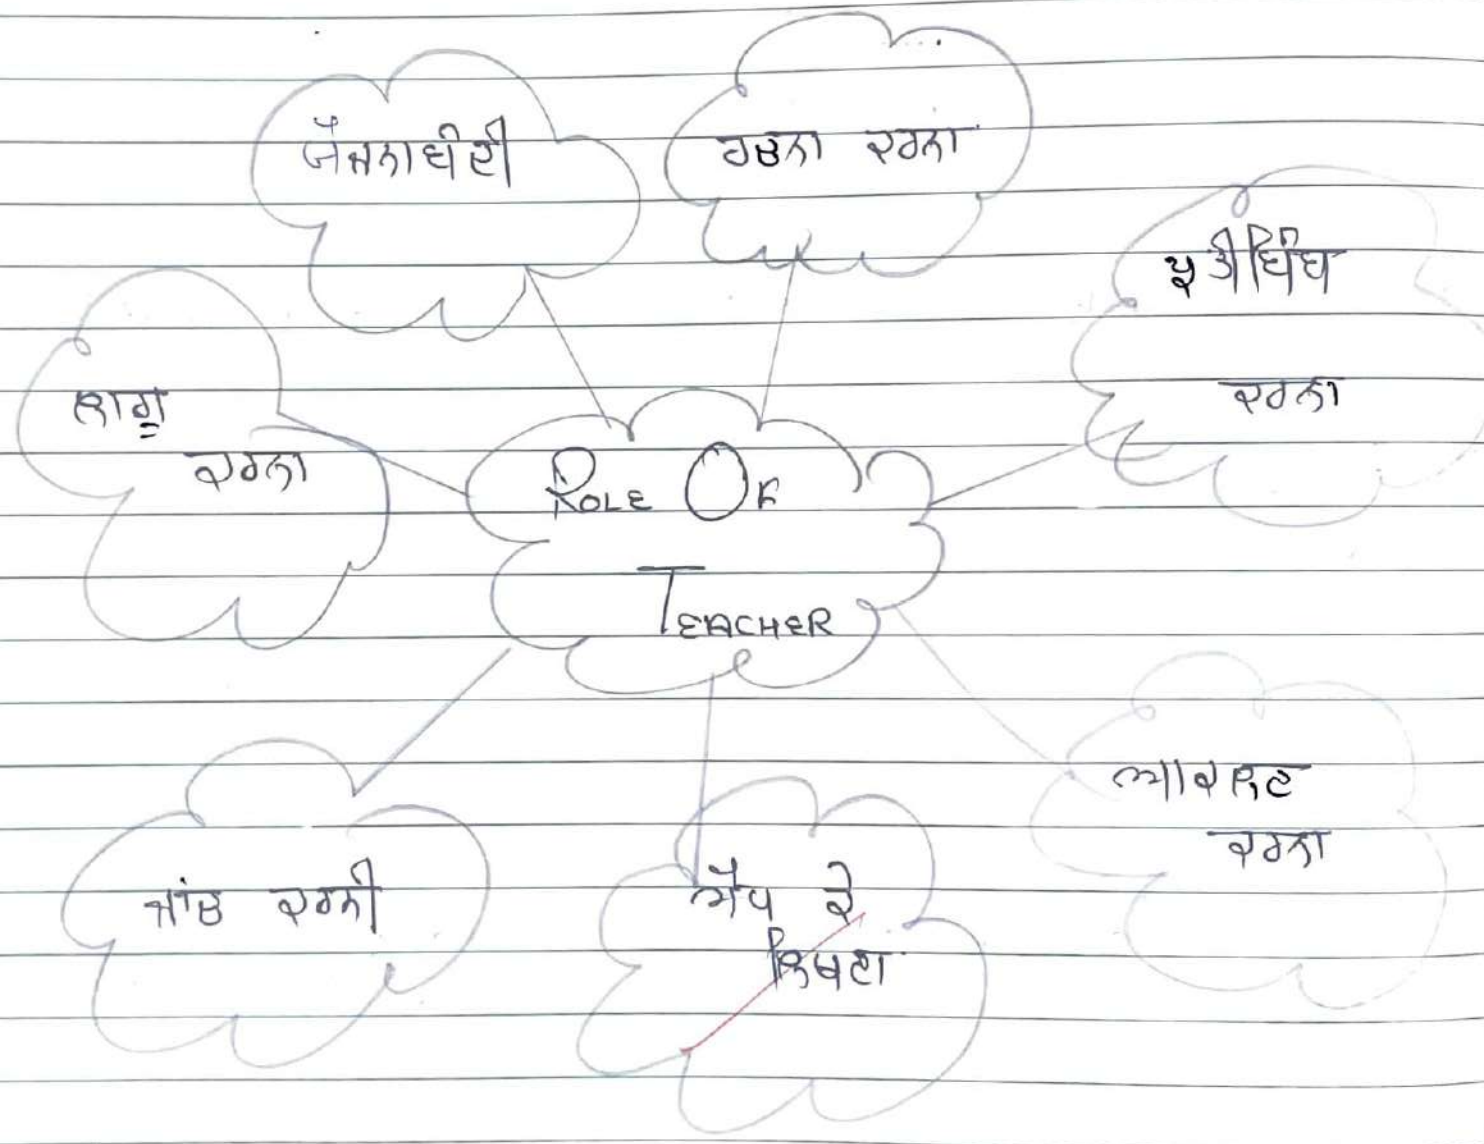 ਯੋਜਨਾਬੰਦੀ
ਰਚਨਾ ਕਰਨਾ
ਪ੍ਰਤੀਬਿੰਬ
ਕਰਨਾ
ਲਾਗੂ
ਕਰਨਾ
ROLE OF
TEACHER
ਆਕਲਣ
ਕਰਨਾ
ਜਾਂਚ ਕਰਨੀ
ਐਪ
ਲਿਖਣਾ